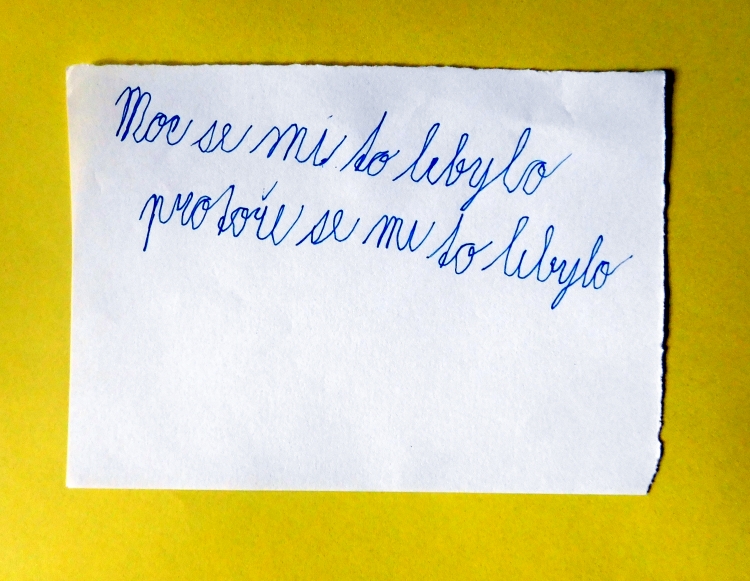 Moc se mi to lebylo
protoře se me to lebylo